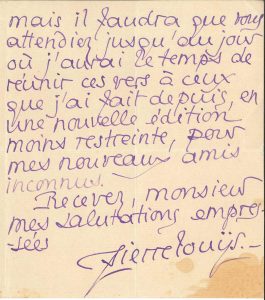 mais il faudra que vous
attendiez jusqu'au jour
où j'aurai le temps de
réunir ces vers à ceux
que j'ai fait depuis, en
une nouvelle édition
moins restreinte, pour
mes nouveaux amis
inconnus.
Recevez, monsieur
mes salutations empres-
sées
Pierre Louÿs.